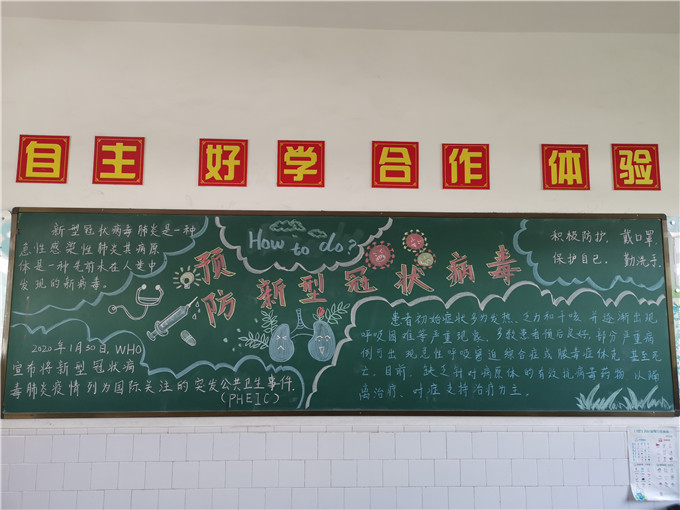 自主 好学 合作 体验
新型冠状病毒肺炎是一种
急性感染性肺炎其病原
体是一种先前未在人类中
发现的新病毒。
How to do?
预防新型冠状病毒
积极防护，戴口罩
保护自己，勤洗手
2020年1月30日，WHO
宣布将新型冠状病
毒肺炎疫情列为国际关注的突发公共卫生事件
(PHEIC)
患者初始症状多为发热、乏力和干咳，并逐渐出现
呼吸困难等严重现象。多数患者预后良好，部分严重病
例可出现急性呼吸窘迫综合征或脓毒症休克，甚至死
亡。目前，缺乏针对病原体的有效抗病毒药物，以隔
离治疗、对症支持治疗为主。